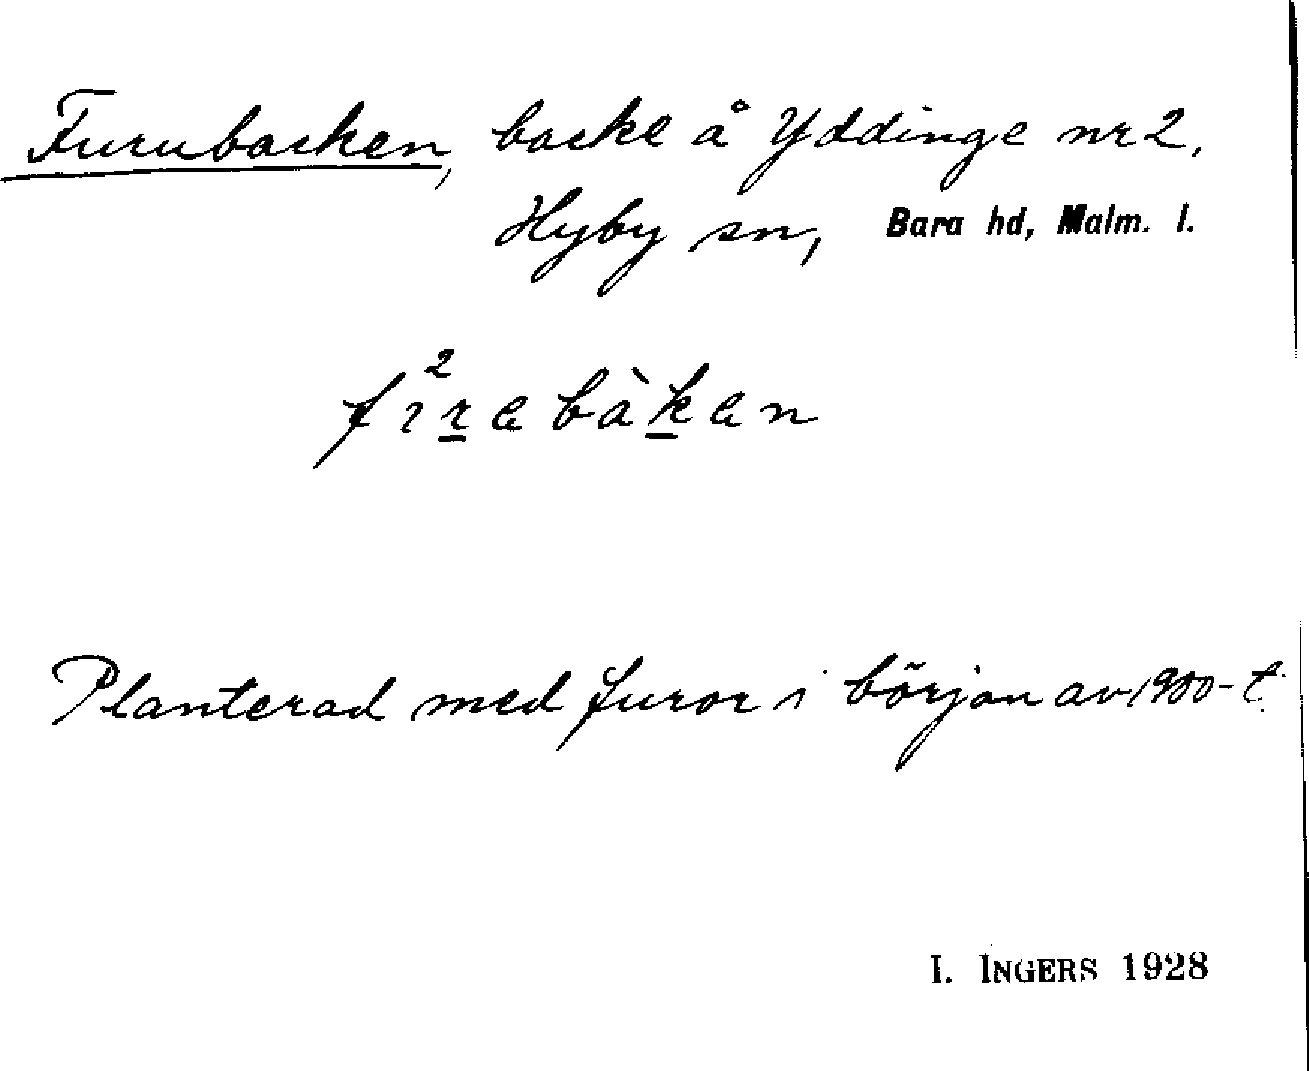 Furubacken, backe å Yddinge nr 2,
Hyby sn, Bara hd, Malm. l.
fı²r̲ebàk̲en
Planterad med furor i början av 1900-t.
I. INGERS 1928